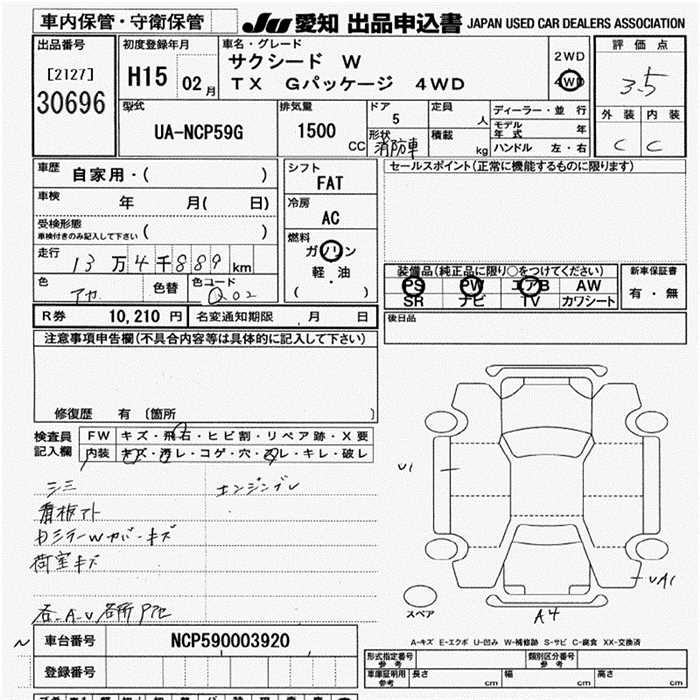 車内保管・守衛保管
JU 愛知 出品申込書 JAPAN USED CAR DEALERS ASSOCIATION
出品番号
[2127]
30696
初度登録年月
H15 02 月
車名・グレード
サクシード W
TX Gパッケージ 4WD
2WD
4WD
評価点
3.5
外装 内装
C C
型式
UA-NCP59G
排気量
1500
CC
ドア
5
形状
消防車
定員
人
積載
kg
ディーラー・並行
モデル年式 年
ハンドル 左・右
車歴
自家用・( )
車検
年 月( 日)
受検形態
車検付きのみ記入して下さい ( )
走行
13万4千889 km
色
アカ
色替
色コード
Q02
シフト
FAT
冷房
AC
燃料
ガソリン
軽・油
( )
セールスポイント(正常に機能するものに限ります)
装備品(純正品に限り○をつけてください)
PS PW エアB AW
SR ナビ TV カワシート
新車保証書
有・無
R券 10,210 円 名変通知期限 月 日
後日品
注意事項申告欄(不具合内容等は具体的に記入して下さい)
修復歴 有 〔箇所 〕
検査員
記入欄
FW キズ・飛石・ヒビ割・リペア跡・X要
内装 キズ・汚レ・コゲ・穴・スレ・キレ・破レ
シミ
エンジンブレ
看板アト
DミラーWカバーキズ
荷室キズ
各A.U各所
U1
UA1
A4
スペア
A-キズ E-エクボ U-凹み W-補修跡 S-サビ C-腐食 XX-交換済
車台番号 NCP590003920
登録番号
形式指定番号
参考
類別区分番号
参考
車庫証明用
参考
長さ cm 幅 cm 高さ cm